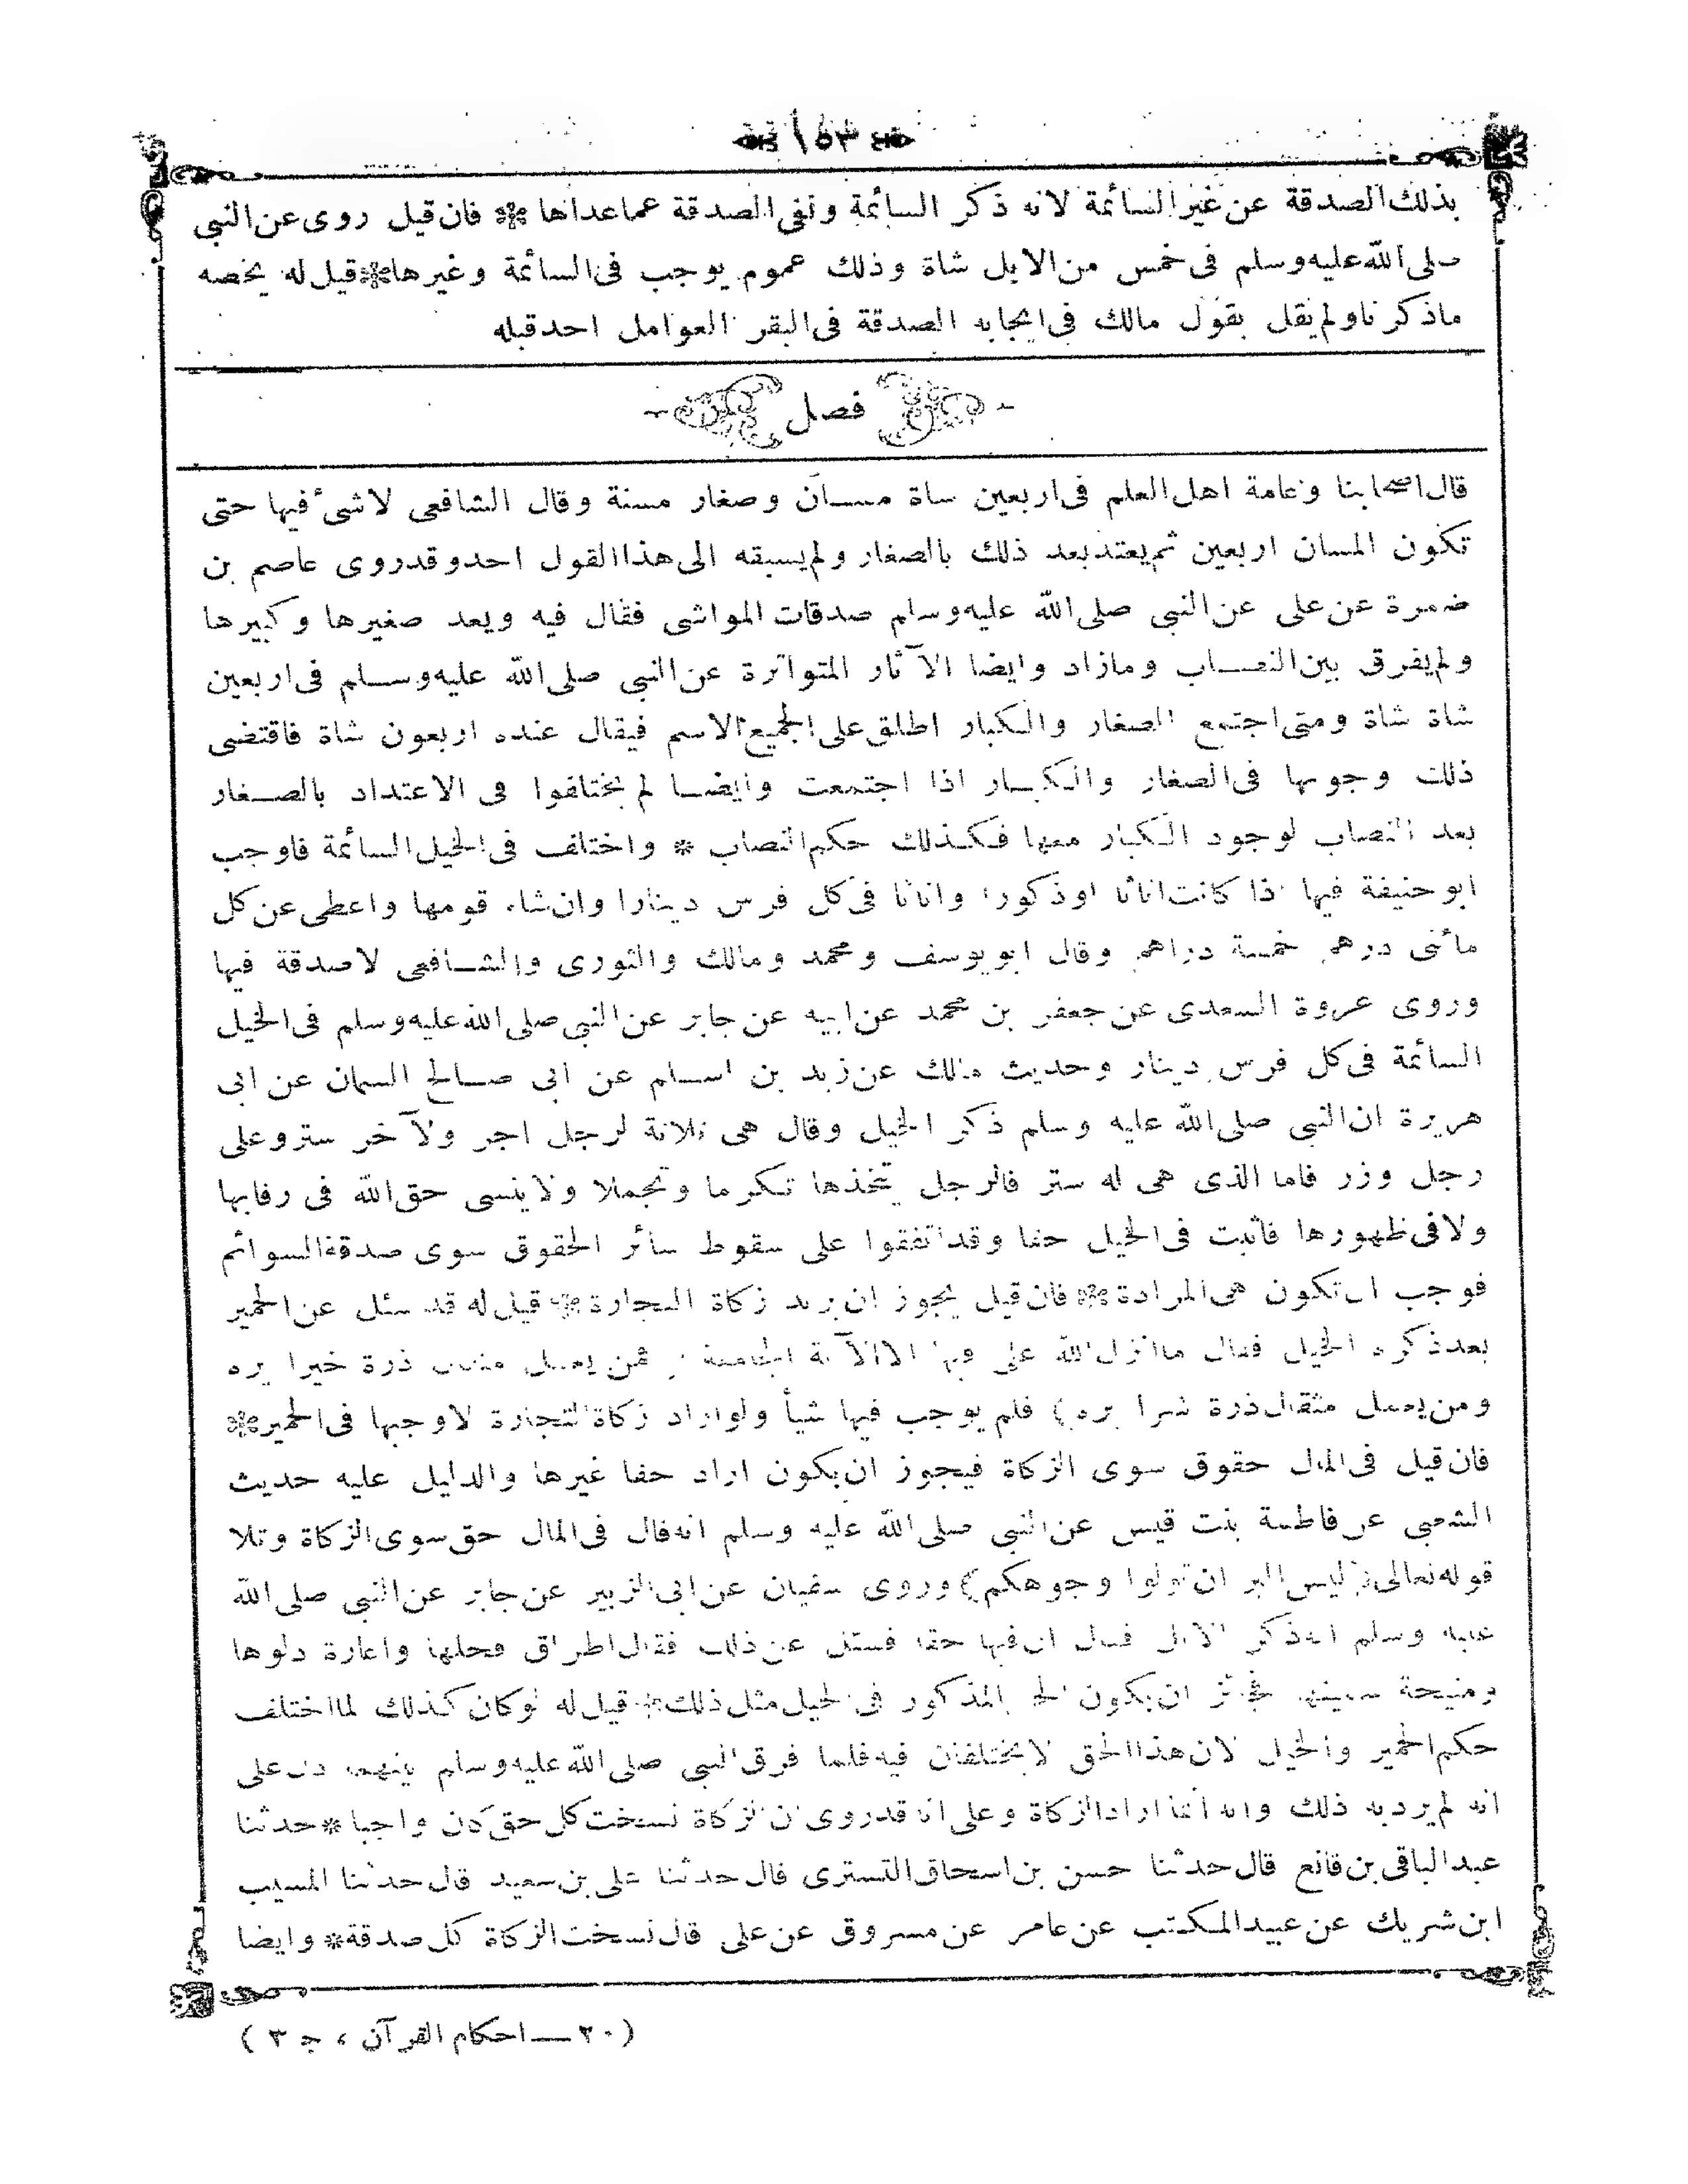 ١٥٣
بذلك الصدقة عن غير السائمة لانه ذكر السائمة ونفى الصدقة عما عداها * فان قيل روى عن النبي
صلى الله عليه وسلم فى خمس من الابل شاة وذلك عموم يوجب فى السائمة وغيرها * قيل له يخصه
ماذكرنا ولم يقل بقول مالك فى ايجابه الصدقة فى البقر العوامل احد قبله
فصل
قال اصحابنا وعامة اهل العلم فى اربعين ساة مسان وصغار مسنة وقال الشافعى لاشىء فيها حتى
تكون المسان اربعين ثم يعتد بعد ذلك بالصغار ولم يسبقه الى هذا القول احد وقد روى عاصم بن
ضمرة عن على عن النبى صلى الله عليه وسلم صدقات المواشى فقال فيه ويعد صغيرها وكبيرها
ولم يفرق بين النصاب ومازاد وايضا الآثار المتواترة عن النبى صلى الله عليه وسلم فى اربعين
شاة شاة ومتى اجتمع الصغار والكبار اطلق على الجميع الاسم فيقال عنده اربعون شاة فاقتضى
ذلك وجوبها فى الصغار والكبار اذا اجتمعت وايضا لم يختلفوا فى الاعتداد بالصغار
بعد النصاب لوجود الكبار معها فكذلك حكم النصاب * واختلف فى الخيل السائمة فاوجب
ابو حنيفة فيها اذا كانت اناثا او ذكورا واناثا فى كل فرس دينارا وان شاء قومها واعطى عن كل
مائتى درهم خمسة دراهم وقال ابو يوسف ومحمد ومالك والثورى والشافعى لاصدقة فيها
وروى عروة السعدى عن جعفر بن محمد عن ابيه عن جابر عن النبى صلى الله عليه وسلم فى الخيل
السائمة فى كل فرس دينار وحديث مالك عن زيد بن اسلم عن ابى صالح السمان عن ابى
هريرة ان النبى صلى الله عليه وسلم ذكر الخيل وقال هى ثلاثة لرجل اجر ولآخر ستر وعلى
رجل وزر فاما الذى هى له ستر فالرجل يتخذها تكرما وتجملا ولا ينسى حق الله فى رقابها
ولا فى ظهورها فاثبت فى الخيل حقا وقد اتفقوا على سقوط سائر الحقوق سوى صدقة السوائم
فوجب ان تكون هى المرادة * فان قيل يجوز ان يريد زكاة التجارة * قيل له قد سئل عن الحمير
بعد ذكره الخيل فقال ما انزل الله على فيها الا الآية الجامعة ( فمن يعمل مثقال ذرة خيرا يره
ومن يعمل مثقال ذرة شرا يره ) فلم يوجب فيها شيأ ولو اراد زكاة التجارة لاوجبها فى الحمير *
فان قيل فى المال حقوق سوى الزكاة فيجوز ان يكون اراد حقا غيرها والدليل عليه حديث
الشعبى عن فاطمة بنت قيس عن النبى صلى الله عليه وسلم انه قال فى المال حق سوى الزكاة وتلا
قوله تعالى ( ليس البر ان تولوا وجوهكم ) وروى سفيان عن ابى الزبير عن جابر عن النبى صلى الله
عليه وسلم انه ذكر الابل فقال ان فيها حقا فسئل عن ذلك فقال اطراق فحلها واعارة دلوها
ومنيحة سمينها فجائز ان يكون الحق المذكور فى الخيل مثل ذلك * قيل له لو كان كذلك لما اختلف
حكم الحمير والخيل لان هذا الحق لا يختلفان فيه فلما فرق النبى صلى الله عليه وسلم بينهما دل على
انه لم يرد به ذلك وانه انما اراد الزكاة وعلى انه قد روى ان الزكاة نسخت كل حق كان واجبا * حدثنا
عبد الباقى بن قانع قال حدثنا حسن بن اسحاق التسترى قال حدثنا على بن سعيد قال حدثنا المسيب
ابن شريك عن عبيد المكتب عن عامر عن مسروق عن على قال نسخت الزكاة كل صدقة * وايضا
( ٢٠ — احكام القرآن ، ج ٣ )